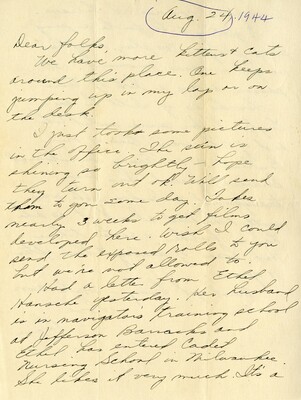 Aug. 24, 1944
Dear folks,
We have more kittens & cats
around this place. One keeps
jumping up in my lap or on
the desk.
I just took some pictures
in the office. The sun is
shining so brightly - hope
they turn out ok. Will send
them to you some day. Takes
nearly 3 weeks to get films
developed here. Wish I could
send the exposed rolls to you
but we're not allowed to.
Had a letter from Ethel
Hansche yesterday. Her husband
is in navigators training school
at Jefferson Barracks and
Ethel has entered Cadet
Nursing School in Milwaukee.
She likes it very much. It's a